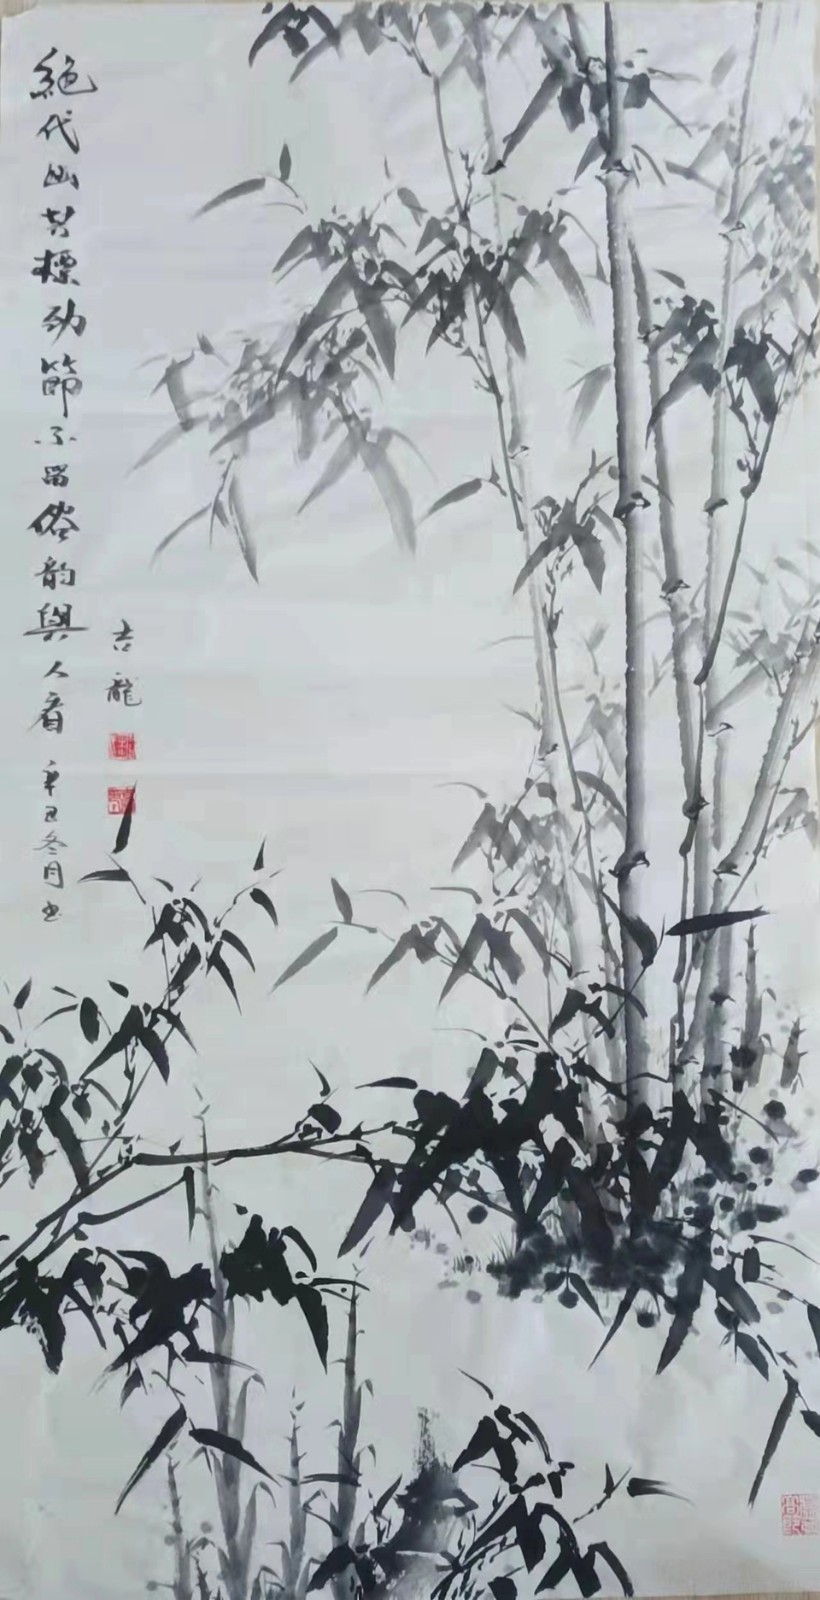 絕代幽芳標勁節不留俗韵與人看 辛丑冬月书
吉龍